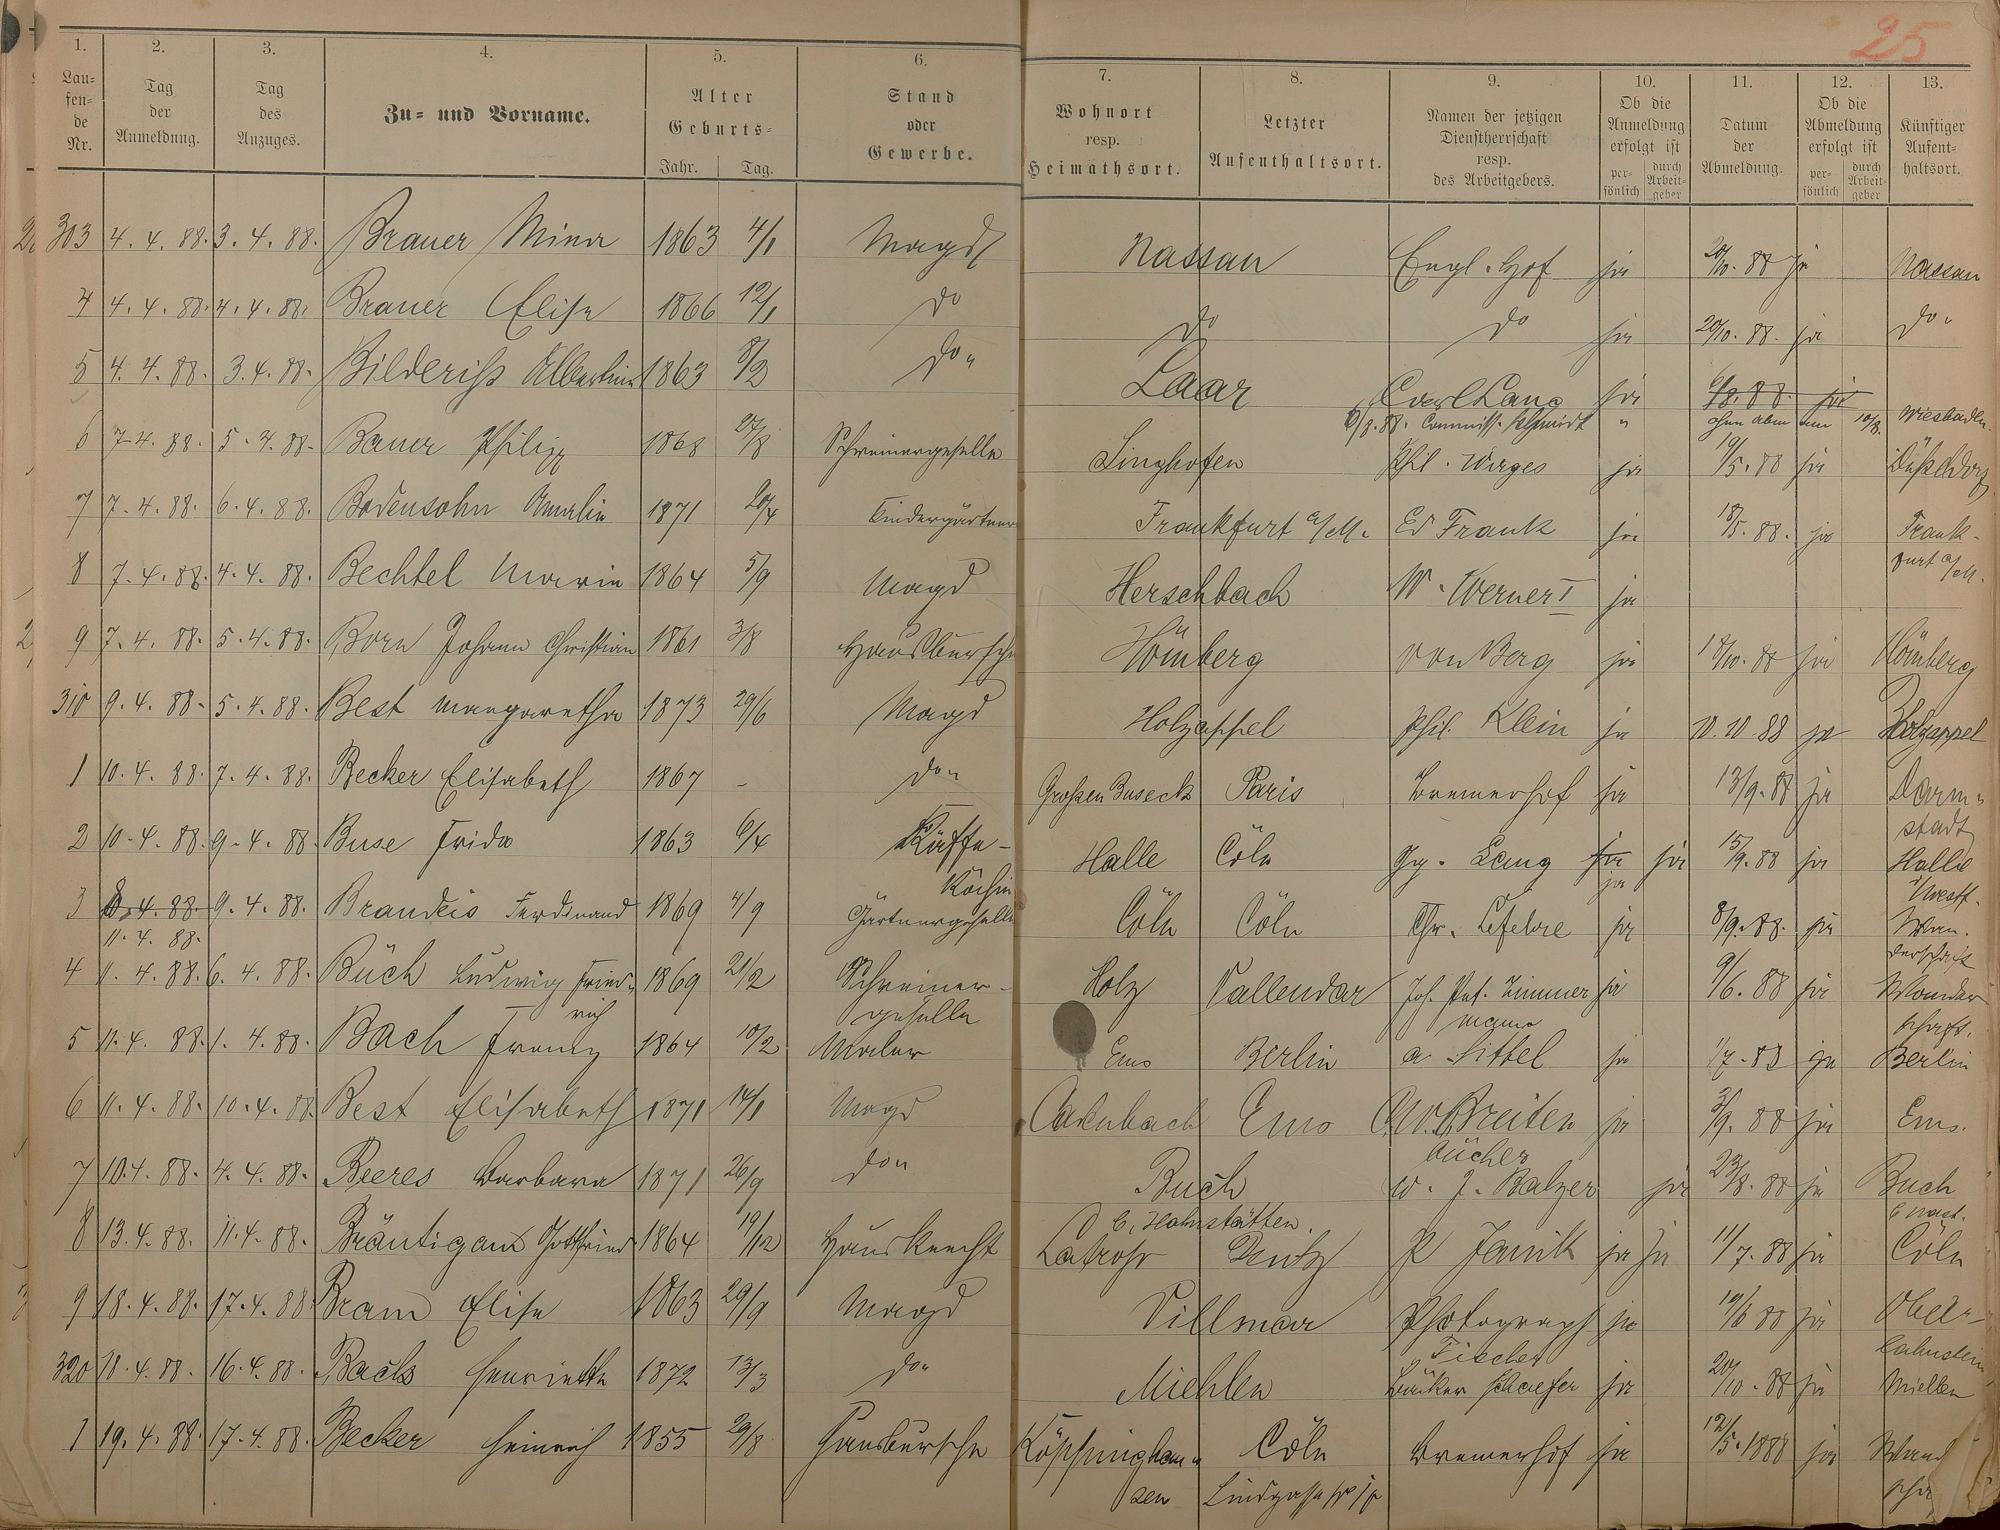 25
1. 2. 3. 4. 5. 6. 7. 8. 9. 10. 11. 12. 13.
Lau-
fen-
de
Nr.
Tag
der
Anmeldung.
Tag
des
Anzuges.
Zu- und Vorname.
Alter
Geburts-
Jahr. Tag.
Stand
oder
Gewerbe.
Wohnort
resp.
Heimathsort.
Letzter
Aufenthaltsort.
Namen der jetzigen
Dienstherrschaft
resp.
des Arbeitgebers.
Ob die
Anmeldung
erfolgt ist
per-
sönlich
durch
Arbeit-
geber
Datum
der
Abmeldung.
Ob die
Abmeldung
erfolgt ist
per-
sönlich
durch
Arbeit-
geber
Künftiger
Aufent-
haltsort.
303 4. 4. 88. 3. 4. 88. Brauer Mina 1863 4/1 Magd Nassau Engl. Hof ja 20/10. 88 ja Nassau
4 4. 4. 88. 4. 4. 88. Brauer Elise 1866 12/1 do do do ja 20/10. 88. ja do"
5 4. 4. 88. 3. 4. 88. Bilderiss Albertine 1863 8/2 do" Laar Carl Lang ja 6/8. 88. ja
6/8. 88. Commiss. Schmidt " Wiesbaden.
6 7. 4. 88. 5. 4. 88. Bauer Philipp 1868 27/8 Schreinergeselle Singhofen Phil. Wirges ja 19/5. 88 ja Düsseldorf
7 7. 4. 88. 6. 4. 88. Bodensohn Amalie 1871 20/4 Kindergärtner Frankfurt a/M. Ed Frank ja 18/5. 88. ja Frank-
furt a/M.
8 7. 4. 88. 4. 4. 88. Bechtel Marie 1864 5/9 Magd Herschbach W. Werner I ja
9 7. 4. 88. 5. 4. 88. Born Johann Christian 1861 3/8 Hausbursche Hömberg von Berg ja 18/10. 88 ja Hömberg
310 9. 4. 88. 5. 4. 88. Best Margaretha 1873 29/6 Magd Holzappel Phil. Klein ja 10. 10 88 ja Holzappel
1 10. 4. 88. 7. 4. 88. Becker Elisabeth 1867 - do" Großen Buseck Paris Bremerhof ja 13/9. 88 ja Darm-
stadt
2 10. 4. 88. 9. 4. 88. Buse Frida 1863 6/4 Kaffe- Halle Cöln Gg. Lang ja ja 15/9. 88 ja Halle
Köchin ja i/Westf.
3 4. 88. 9. 4. 88. Brandeis Ferdinand 1869 4/9 Gärtnergeselle Cöln Cöln Chr. Lefebre ja 8/9. 88. ja Wan-
11. 4. 88. derschaft
4 11. 4. 88. 6. 4. 88. Büch Ludwig Fried- 1869 21/2 Schreiner- Holz Vallendar Joh. Pet. Zimmer ja 9/6. 88 ja Wander
rich geselle mann schaft.
5 11. 4. 88. 1. 4. 88. Bach Franz 1864 10/2 Maler Ems Berlin A. Sittel ja 1/7. 88 ja Berlin
6 11. 4. 88. 10. 4. 88. Best Elisabeth 1871 14/1 Magd Ems W. Breiten ja 3/9. 88 ja Ems.
bücher
7 10. 4. 88. 4. 4. 88. Beeres Barbara 1871 26/9 do" Buch W. J. Balzer ja 23/8. 88 ja Buch
b. Hahnstätten. b Nast.
8 13. 4. 88. 11. 4. 88. Bräutigam Gottfried 1864 19/12 Hausknecht Deutz P Janik ja ja 11/7. 88 ja Cöln
9 18. 4. 88. 17. 4. 88 Bram Elise 1863 29/9 Magd Villmar Photograph ja 19/6 88 ja Ober-
Fischer lahnstein
320 18. 4. 88. 16. 4. 88. Back Henriette 1872 13/3 do" Miehlen Bäcker Schaefer ja 20/10. 88 ja Miehlen
1 19. 4. 88. 17. 4. 88. Becker Heinrich 1855 29/8 Hausbursche Cöln Bremerhof ja 12/5. 1888 ja Wand
sen Lindgasse scha